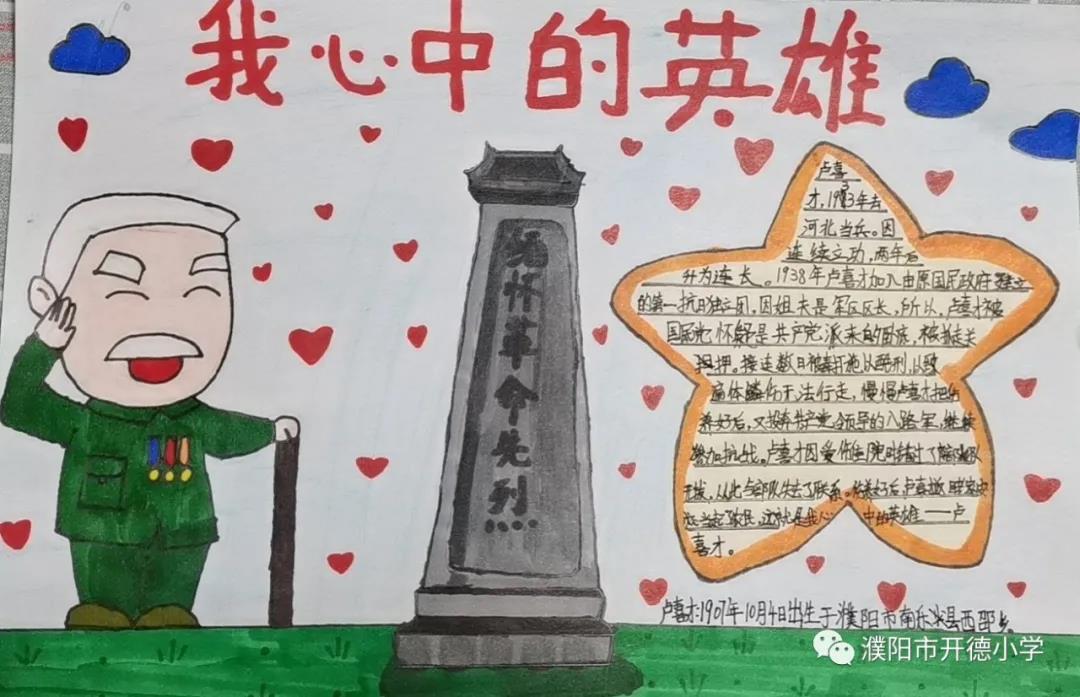 我心中的英雄
缅怀革命先烈
卢喜
才，1933年去
河北当兵。因
连续立功，两年后
升为连长。1938年卢喜才加入由原国民政府建立
的第一抗日独立团，因姐夫是军区区长，所以，卢喜才被
国民党怀疑是共产党派来的，被抓去关
押。接连数日被毒打施以酷刑，以致
遍体鳞伤无法行走，慢慢卢喜才把伤
养好后，又投奔共产党领导的八路军，继续
参加抗战。卢喜才因受伤住院时错过了
从此与部队失去了联系。养好后卢喜才
当起了农民，这就是我心中的英雄——卢
喜才。
卢喜才：1907年10月4日出生于濮阳市南乐县西邵乡
濮阳市开德小学